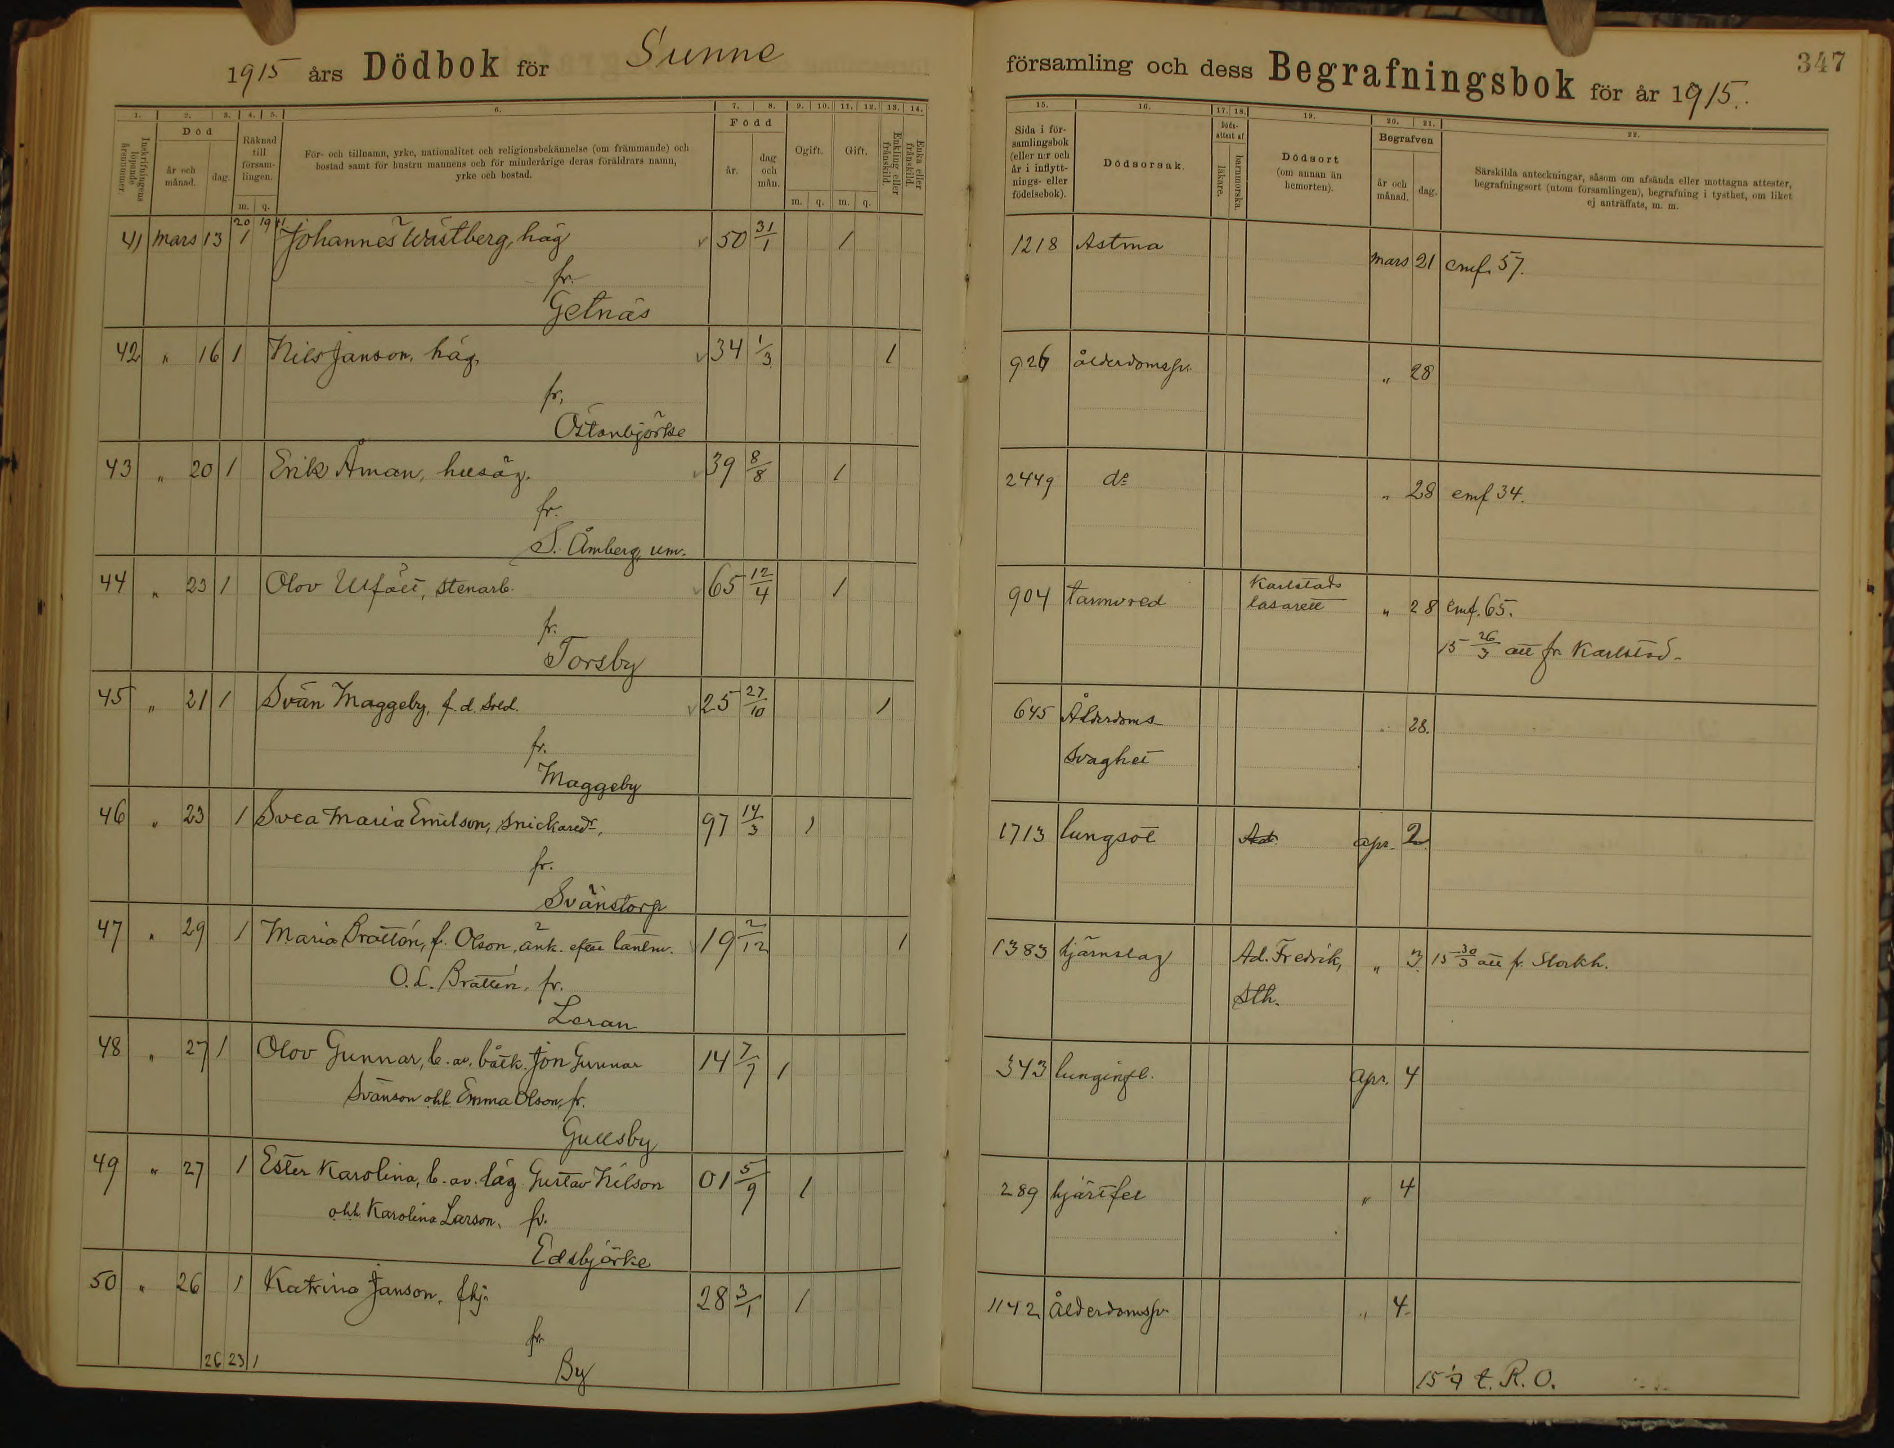 1915 års Dödbok för Sunne
församling och dess Begrafningsbok för år 1915.
347
1. 2. 3. 4. 5. 6. 7. 8. 9. 10. 11. 12. 13. 14.
Inskrifningens löpande årsnummer.
Död
år och månad.
dag.
Räknad till församlingen.
m. q.
För- och tillnamn, yrke, nationalitet och religionsbekännelse (om främmande) och
bostad samt för hustru mannens och för minderårige deras föräldrars namn,
yrke och bostad.
Född
år.
dag och mån.
Ogift.
m. q.
Gift.
m. q.
Enkling eller frånskild.
Enka eller frånskild.
20 19
41 mars 13 1 Johannes Wästberg, häg 50 31/1 1
fr.
Getnäs
42 " 16 1 Nils Janson, häg, 34 1/3 1
fr,
Östanbjörke
43 " 20 1 Erik Åman, husäg. 39 8/8 1
fr.
S. Åmberg, um.
44 " 23 1 Olov Ulfält, stenarb. 65 12/4 1
fr.
Torsby
45 " 21 1 Svän Maggeby, f. d. sold. 25 27/10 1
fr.
Maggeby
46 " 23 1 Svea Maria Emilson, snickaredr, 97 14/3 1
fr.
Svänstorp
47 " 29 1 Maria Brattén, f. Olson, änk. efter lantm. 19 2/12 1
O. L. Brattén, fr.
Leran
48 " 27 1 Olov Gunnar, b. av. båtk. Jon Gunnar 14 7/7 1
Svänson ohh Emma Olson, fr.
Gullsby
49 " 27 1 Ester Karolina, b. av. läg Gustav Nilson 01 5/9 1
ohh Karolina Larson, fr.
Edsbjörke
50 " 26 1 Katrina Janson, fhj. 28 3/1 1
fr
By
26 23 1
15. 16. 17. 18. 19. 20. 21. 22.
Sida i församlingsbok (eller n:r och år i inflyttnings- eller födelsebok).
Dödsorsak.
Dödsattest af
läkare.
barnmorska.
Dödsort
(om annan än
hemorten).
Begrafven
år och månad.
dag.
Särskilda anteckningar, såsom om afsända eller mottagna attester,
begrafningsort (utom församlingen), begrafning i tysthet, om liket
ej anträffats, m. m.
1218 Astma mars 21 emf. 57.
926 ålderdomssv. " 28
2449 do " 28 emf 34.
904 tarmvred Karlstads lasarett " 28 emf. 65.
15 26/3 att fr Karlstad.
645 Ålderdoms- " 28.
svaghet
1713 lungsot apr. 2
1383 hjärnslag Ad. Fredrik, " 3 15 30/3 att fr. Stockh.
Sth.
343 lunginfl. apr. 4
289 hjärtfel " 4
1142 Ålderdomssv. " 4.
15 1/4 t. R. O.